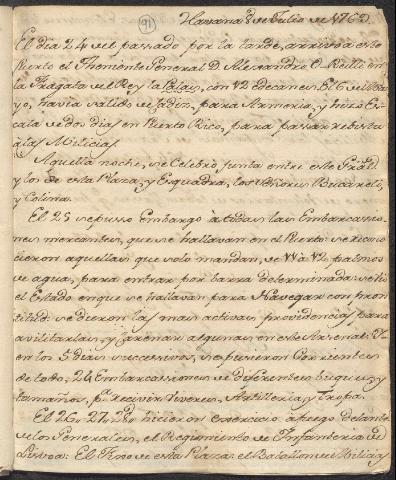 91
Havana 8 de Julio de 1769.
El dia 24 del passado por la tarde, arrivò à este
Puerto el Theniente General D. Alexandro O Reilli en
la Fragata del Rey la Palas, con 42 de canes. El 6 de Ma
yo, havia salido de Cadiz, para America, y hizo Es
cala de dos dias en Puerto Rico, para passar rebista
a las Milicias.
Aquella noche, se Celebrò junta entre este Gral
y los de esta Plaza, y Esquadra, los Señores Bucareli,
y Colina.
El 25 se pusso Embargo à todas las Embarcasio
nes mercantes, que se hallavan en el Puerto: se recono
cieron aquellas que solo mandan, de 11 à 12 palmos
de agua, para entrar por barra determinada: se viò
el Estado en que se hallavan para Navegar con pron
titud: se dieron las mas activas providencias para
avilitarlas, y carenar algunas en este Arsenal: Y
en los 5 dias successivos, se pusieron Corrientes
de todo, 24 Embarcassiones de diferentes buques, y
tamaños, pa. recivir viveres, Artilleria, y tropa.
El 26, 27, 28, hicieron exercicio à fuego delante
de los Generales, el Regimiento de Infanteria de
Lisboa: El Fixo de esta Plaza: el Batallon de Milicias